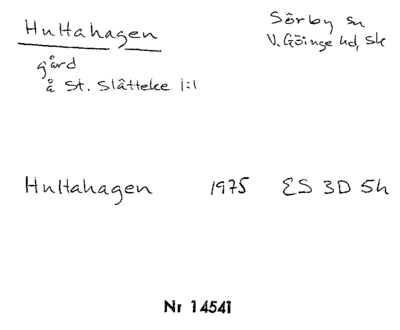 Hultahagen
Sörby sn
V. Göinge hd, Sk
gård
å St. Slätteke 1:1
Hultahagen 1975 ES 3D 5h
Nr 14541